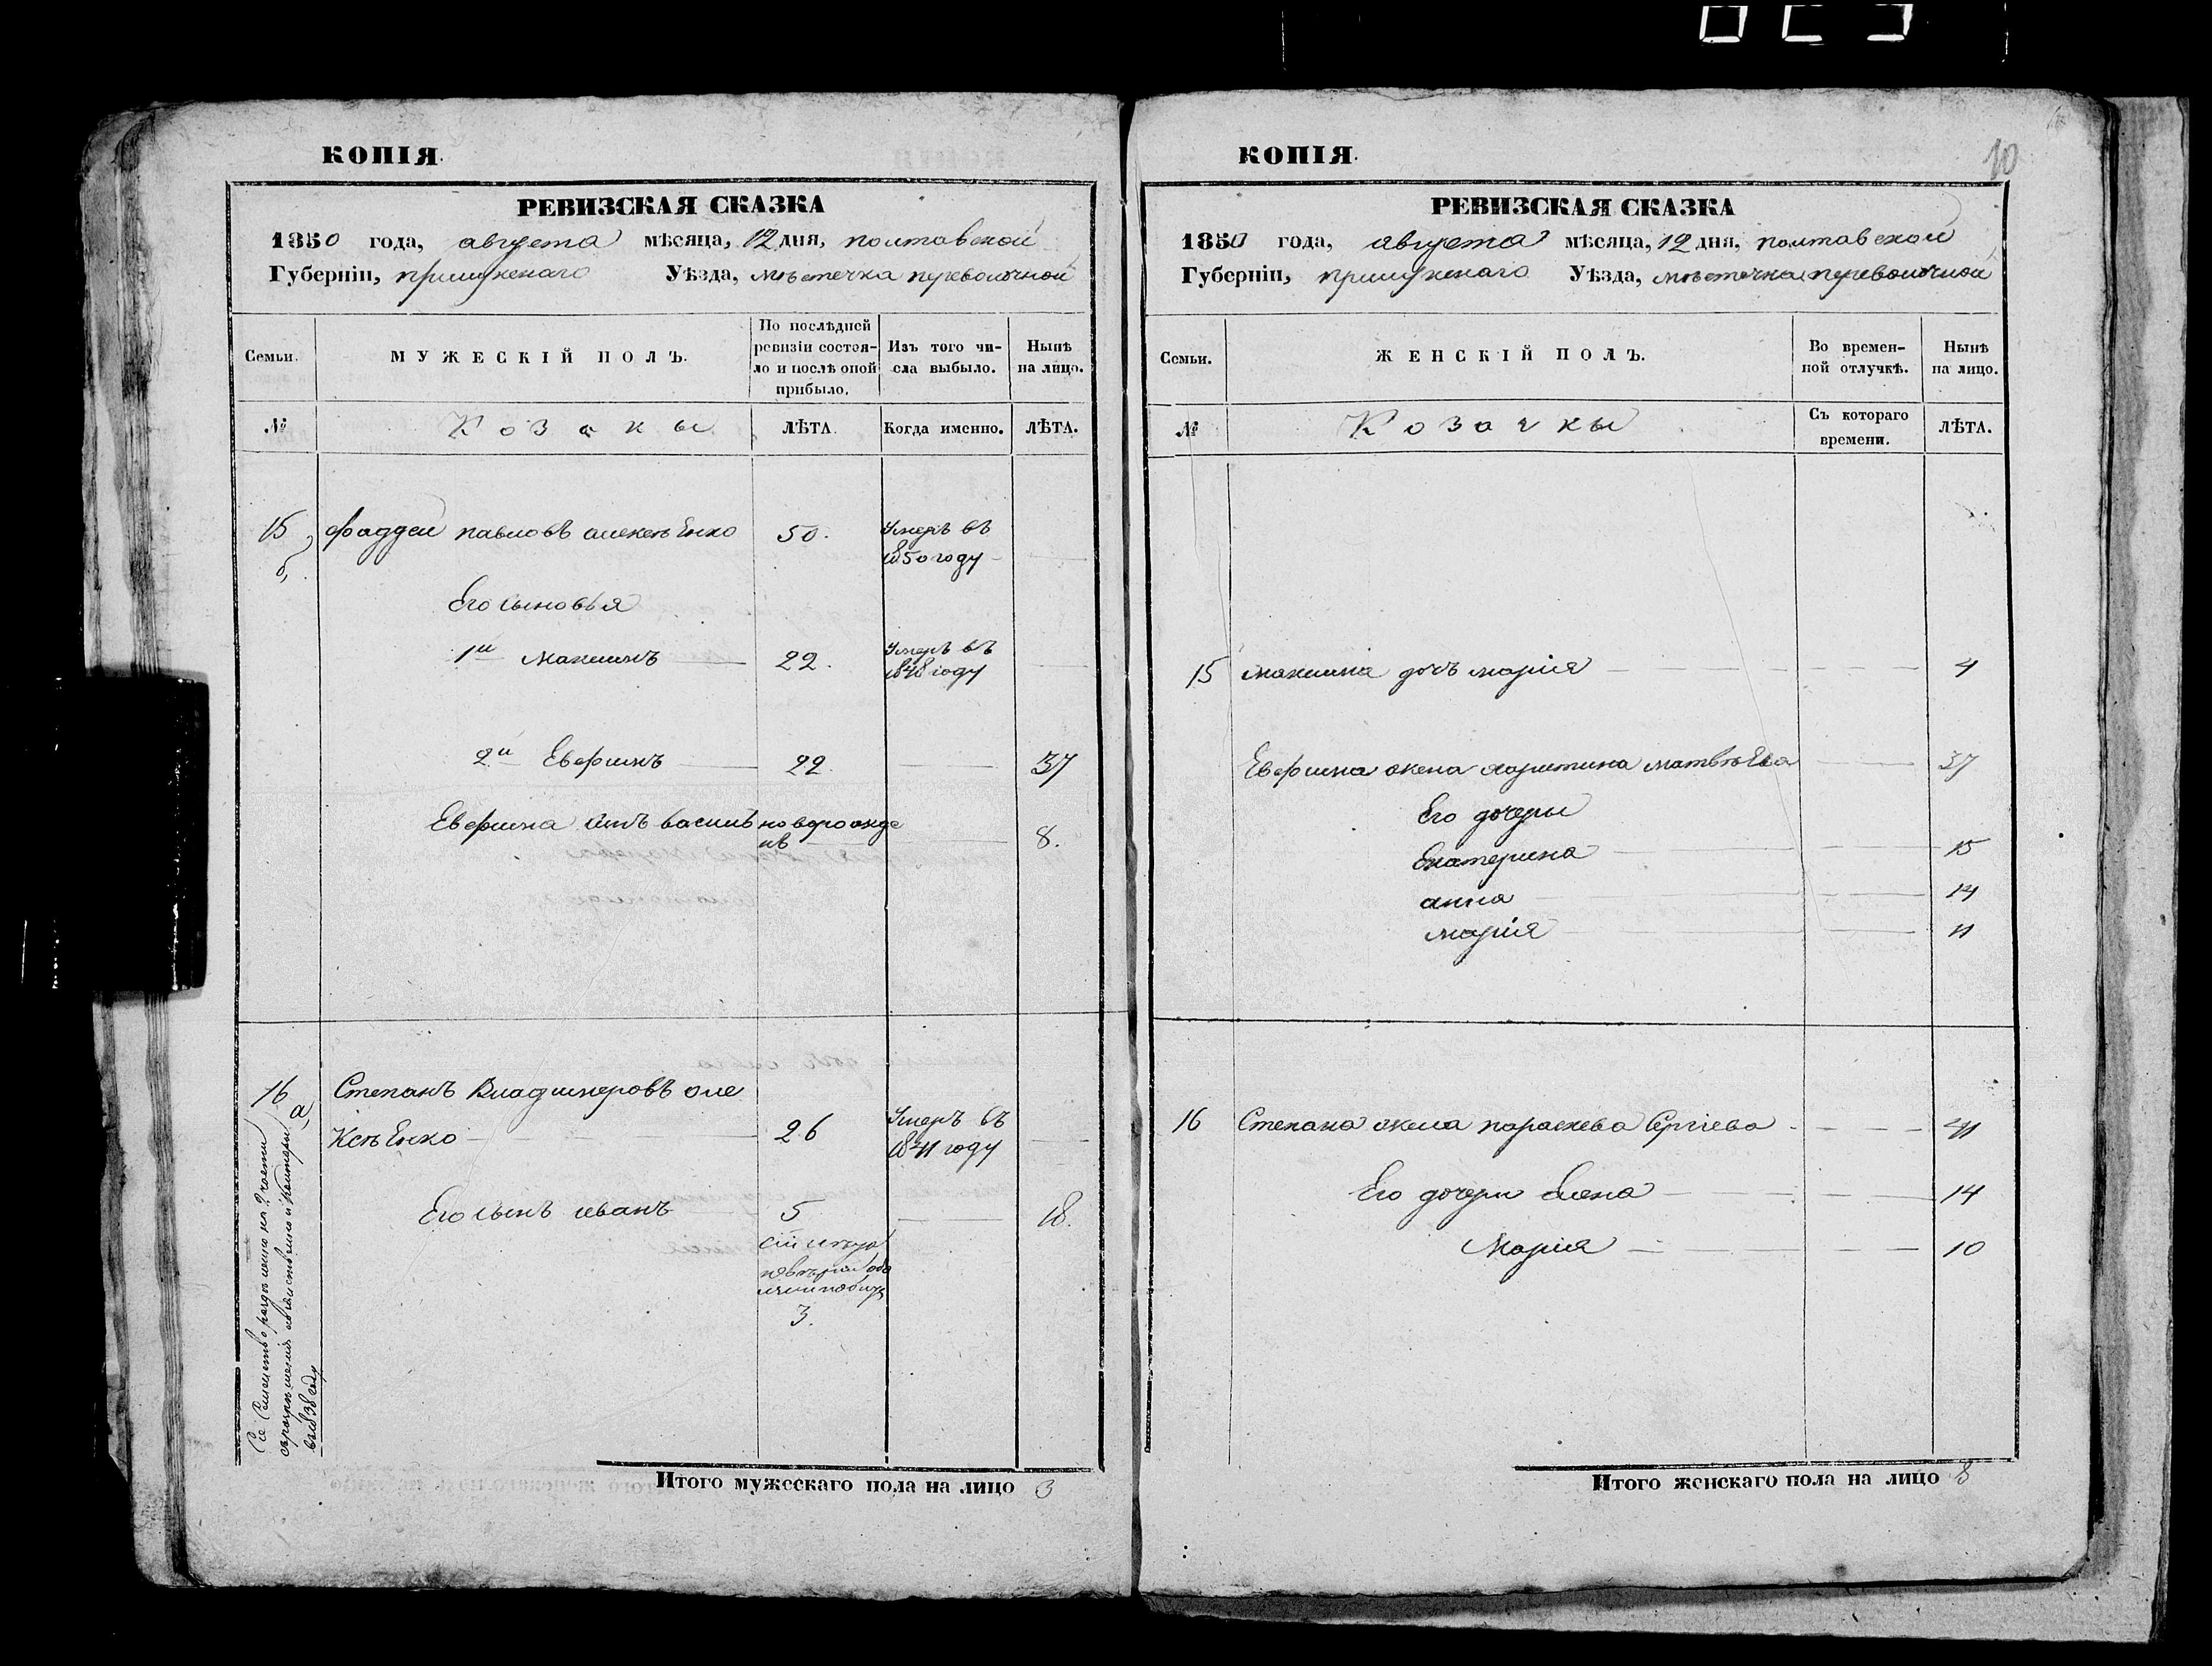 КОПІЯ.
РЕВИЗСКАЯ СКАЗКА
1850 года, августа мѣсяца, 12 дня, полтавской
Губерніи, прилукскаго Уѣзда, мѣстечка переволочной
Семьи.
МУЖЕСКІЙ ПОЛЪ.
По послѣдней
ревизіи состоя-
ло и послѣ оной
прибыло.
Изъ того чи-
сла выбыло.
Нынѣ
на лицо.
№
Козаки
ЛѢТА.
Когда именно.
ЛѢТА.
15 Фаддей павловъ алексѣенко 50. Умеръ въ
1850 году
Его сыновья
1й максимъ 22. Умеръ въ
1848 году
2й Евфимъ 22. 37
Евфима сынъ василь новорожде
нъ 8.
16 Степанъ Владимеровъ оле
а
ксѣенко 26 Умеръ въ
1841 году
Его сынъ иванъ 5 18.
3.
Сіе Семейство раздѣлено на 2 части
въ 1838 году
Итого мужескаго пола на лицо 3
10
КОПІЯ.
РЕВИЗСКАЯ СКАЗКА
1850 года, августа мѣсяца, 12 дня, полтавской
Губерніи, прилукскаго Уѣзда, мѣстечка переволочной
Семьи.
ЖЕНСКІЙ ПОЛЪ.
Во времен-
ной отлучкѣ.
Нынѣ
на лицо.
№
Козачки
Съ котораго
времени.
ЛѢТА.
15 максима дочь марія 4
Евфима жена харитина матвѣева 37
Его дочери
Екатерина 15
анна 14
марія 11
16 Степана жена параскева Сергіева 41
Его дочери Елена 14
Марія 10
Итого женскаго пола на лицо 8